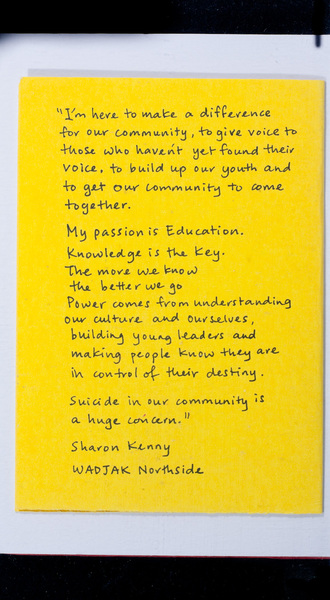 "I'm here to make a difference
for our community, to give voice to
those who haven't yet found their
voice, to build up our youth and
to get our community to come
together.
My passion is Education.
Knowledge is the key.
The more we know
the better we go
Power comes from understanding
our culture and ourselves,
building young leaders and
making people know they are
in control of their destiny.
Suicide in our community is
a huge concern."
Sharon Kenny
WADJAK Northside